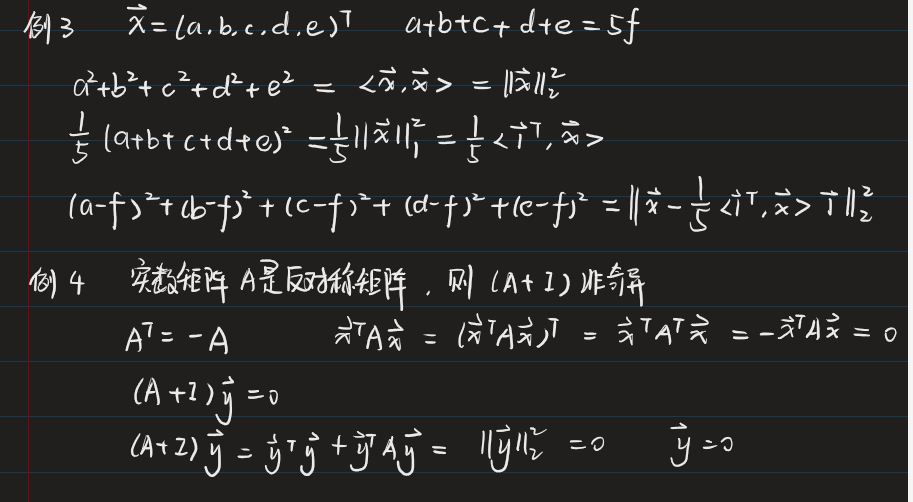 例3 x⃗=(a.b.c.d.e)ᵀ a+b+c+d+e=5f
a²+b²+c²+d²+e² = <x⃗,x⃗> = ||x⃗||₂²
1/5 (a+b+c+d+e)² = 1/5 ||x⃗||₁² = 1/5 <1⃗ᵀ, x⃗>
(a-f)²+(b-f)²+(c-f)²+(d-f)²+(e-f)² = ||x⃗ - 1/5 <1⃗ᵀ, x⃗> 1⃗||₂²
例4 实数矩阵 A是反对称矩阵, 则 (A+I) 非奇异
Aᵀ=-A x⃗ᵀAx⃗ = (x⃗ᵀAx⃗)ᵀ = x⃗ᵀAᵀx⃗ = -x⃗ᵀAx⃗ = 0
(A+I)y⃗=0
(A+I)y⃗ = y⃗ᵀy⃗ + y⃗ᵀAy⃗ = ||y⃗||₂² =0 y⃗=0